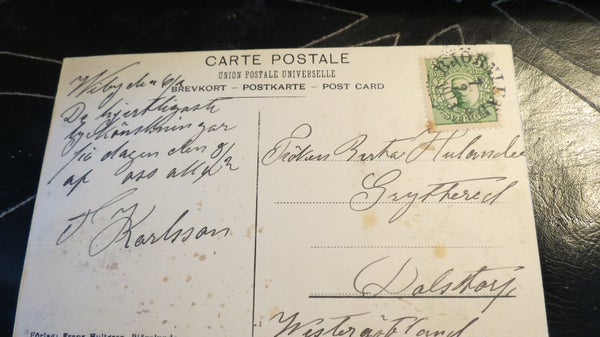 CARTE POSTALE
UNION POSTALE UNIVERSELLE
BREVKORT – POSTKARTE – POST CARD
Wiby den 6/2
De hjertligaste
lyckönskningar
på dagen den 8/2
af oss alla
A Karlsson
Fröken Berta Hulander
Grythered
Dalstorp
Westergötland
Förlag: Frans Hultgren